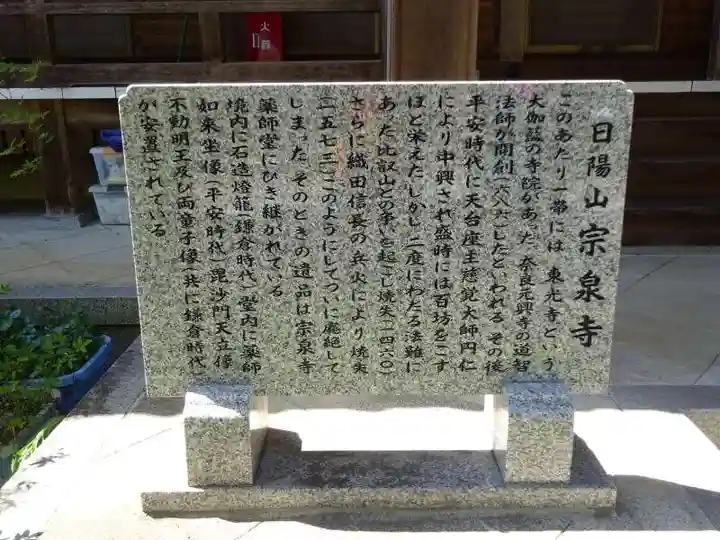 日陽山宗泉寺
このあたり一帯には、東光寺という
大伽藍の寺院があった。奈良元興寺の道智
法師が開創(六八六)したといわれる。その後
平安時代に天台座主慈覚大師円仁
により中興され盛時には百坊をこす
ほど栄えた。しかし二度にわたる法難に
あった。比叡山との争いを起こし焼失(一四六〇)
さらに織田信長の兵火により焼失
(一五七三)このようにしてついに廃絶して
しまった。そのときの遺品は宗泉寺
薬師堂にひき継がれている。
境内に石造燈籠(鎌倉時代)堂内に薬師
如来坐像(平安時代)毘沙門天立像
不動明王及び両童子像(共に鎌倉時代)
が安置されている。
火